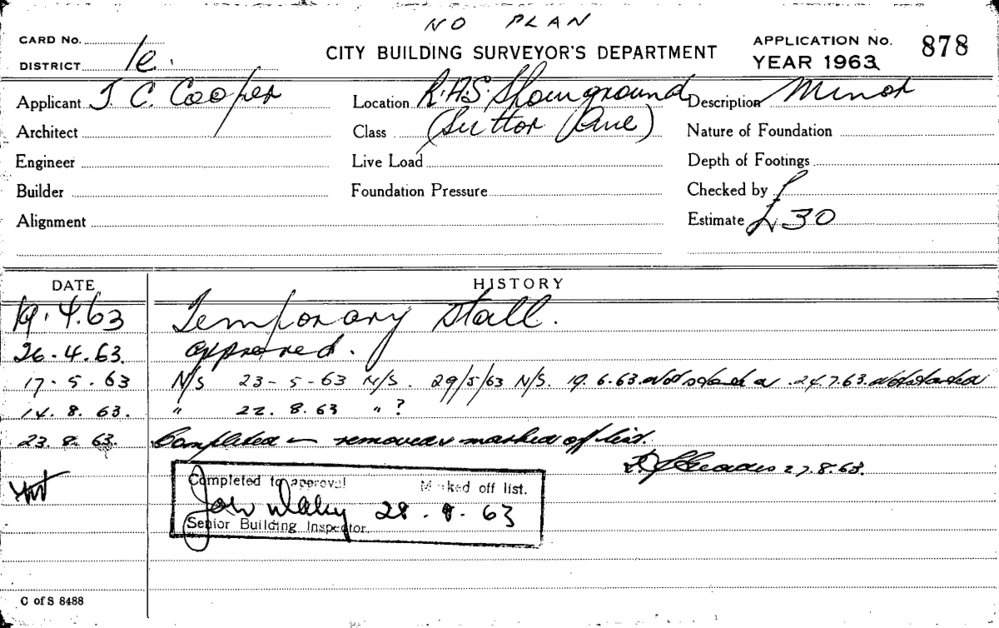 NO PLAN
CARD No.
DISTRICT 1e.
CITY BUILDING SURVEYOR'S DEPARTMENT
APPLICATION No. 878
YEAR 1963
Applicant J. C. Cooper
Location R.A.S. Showground
Description Minor
Architect
Class (Suttor Ave)
Nature of Foundation
Engineer
Live Load
Depth of Footings
Builder
Foundation Pressure
Checked by
Alignment
Estimate £30
DATE
HISTORY
19.4.63 Temporary Stall.
26.4.63. approved.
17.5.63 N/S 23-5-63 N/S. 29/5/63 N/S. 19.6.63. not started 24.7.63. not started
14.8.63. " 22.8.63 " ?
23.8.63. Completed removed marked off list.
27.8.63.
Completed to approval Marked off list.
28.8.63
Senior Building Inspector
C of S 8488